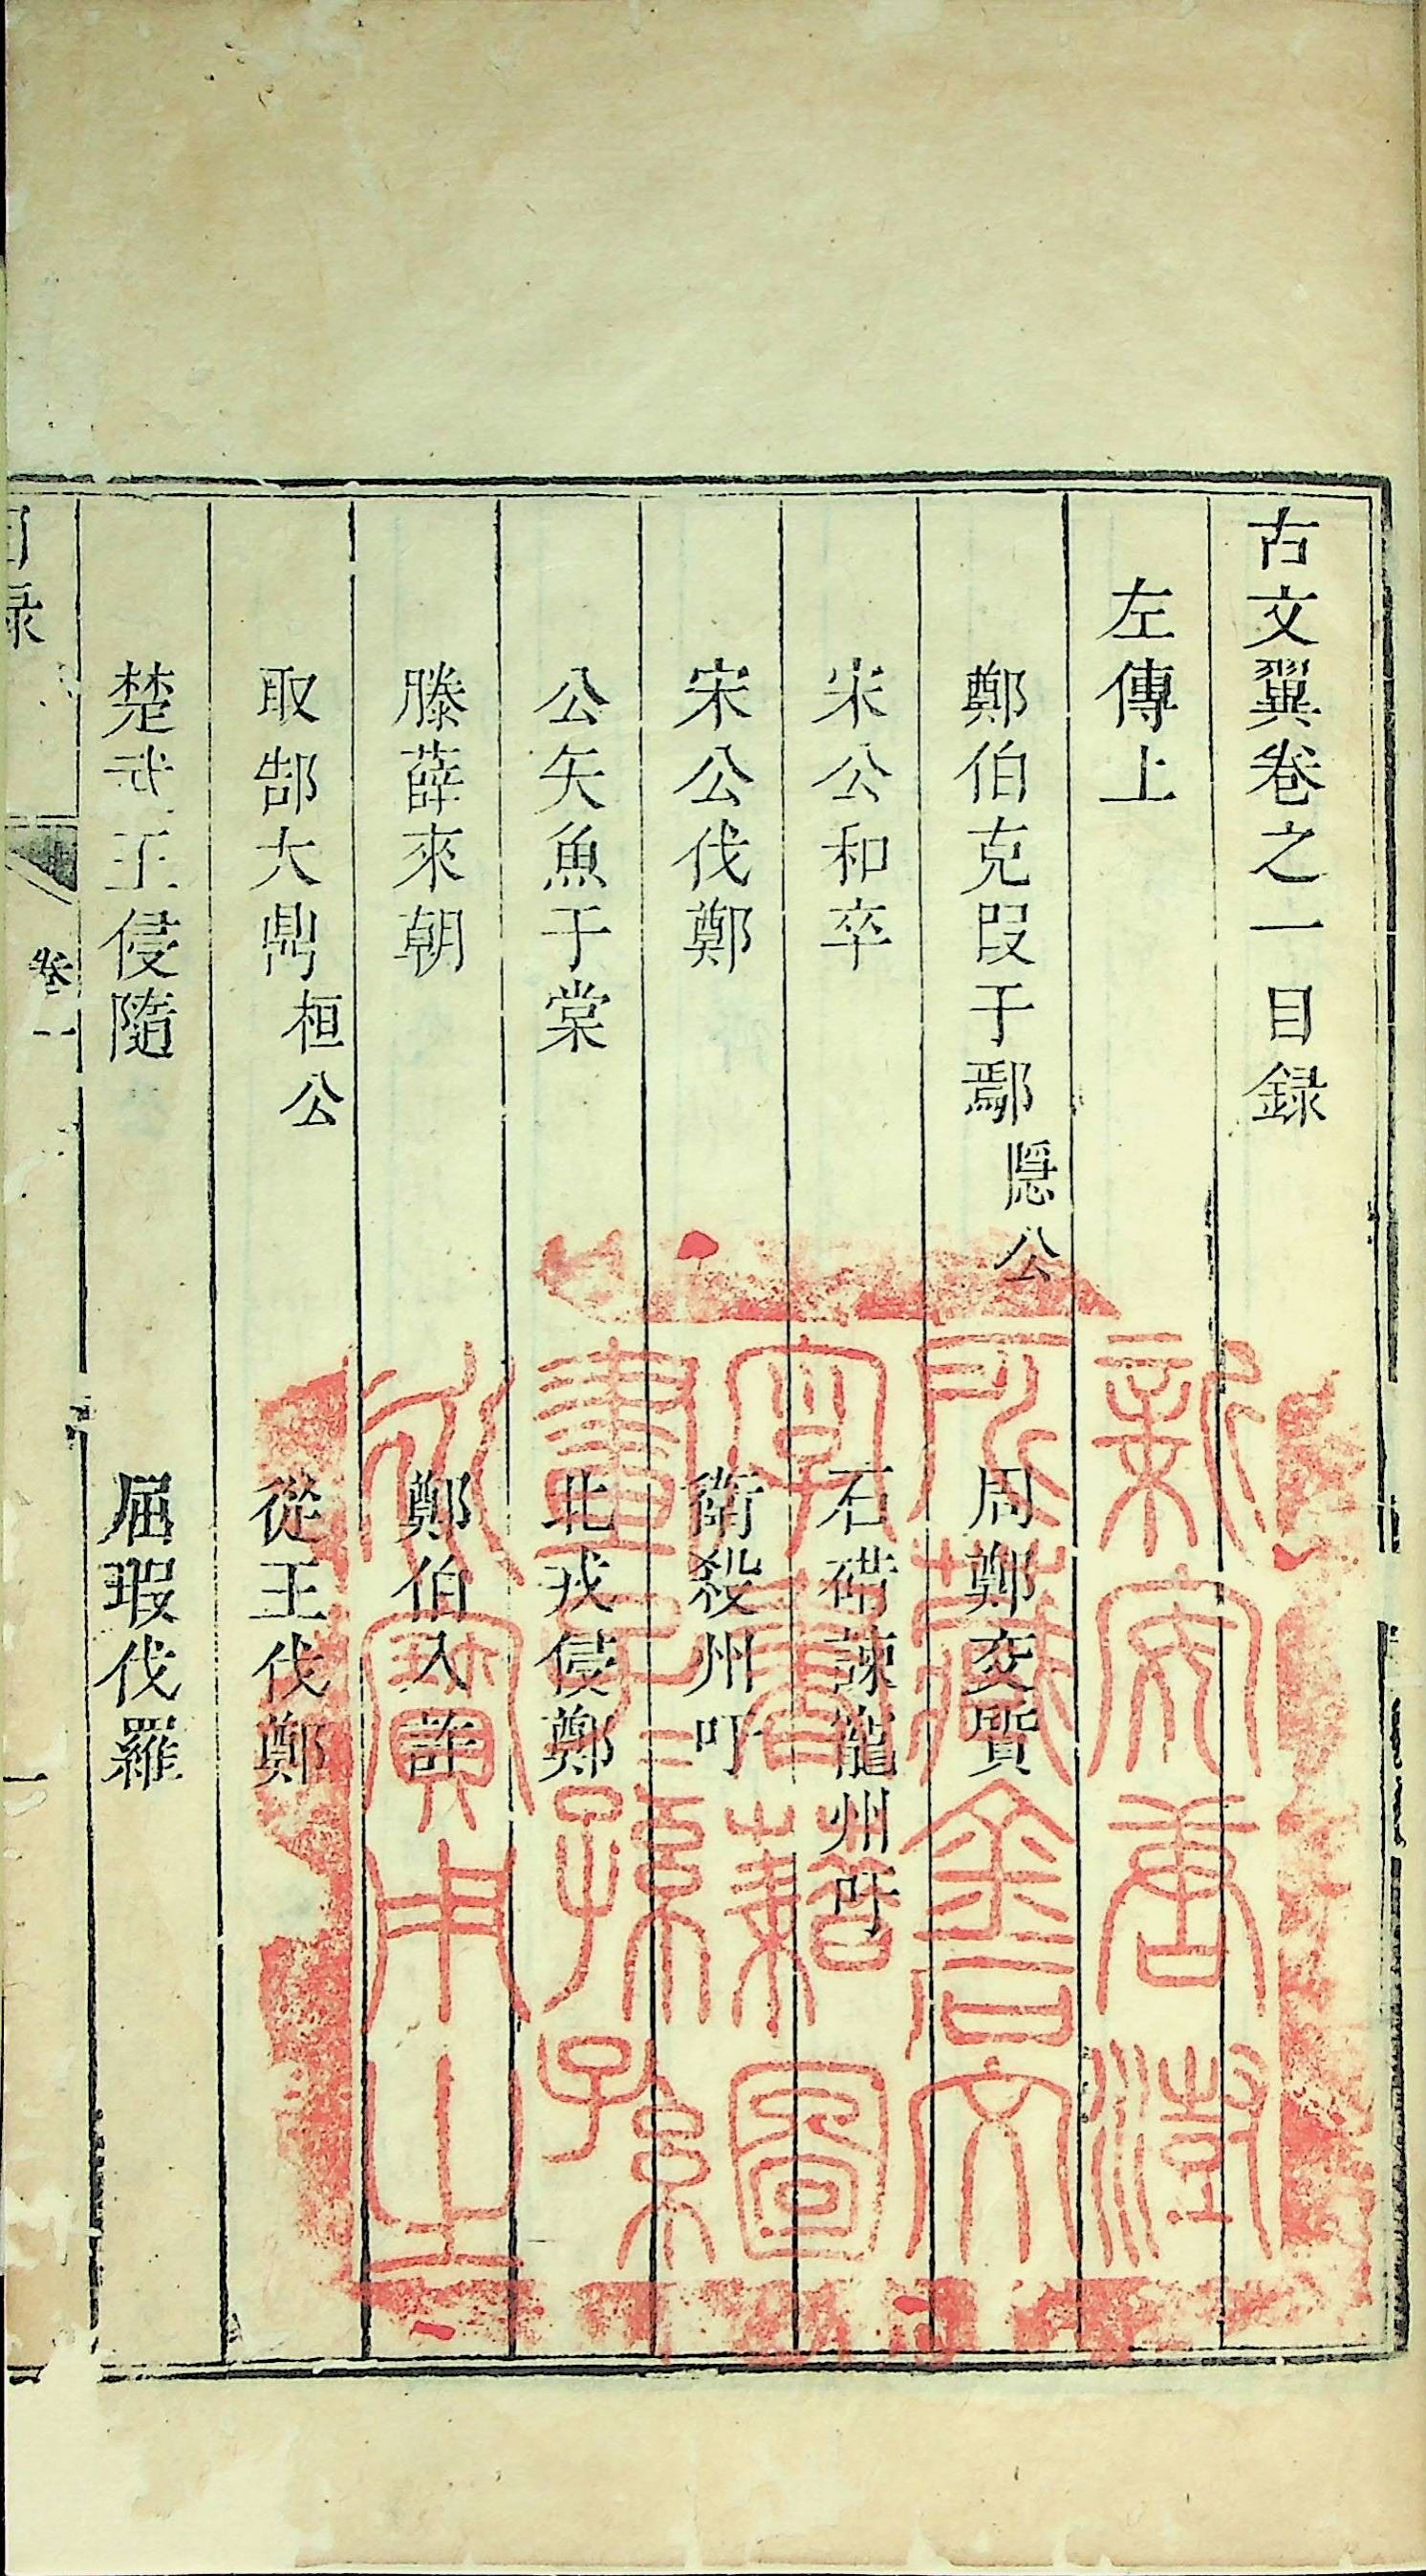 古文翼卷之一目録
左傳上
鄭伯克段于鄢隱公 周鄭交質
宋公和卒 石碏諫寵州吁
宋公伐鄭 衛殺州吁
公矢魚于棠 北戎侵鄭
滕薛來朝 鄭伯入許
取郜大鼎桓公 從王伐鄭
楚武王侵隨 屈瑕伐羅
目録 卷一 一
新安唐澄
所藏金石文
字書籍圖
畫子子孫孫
永寶用之